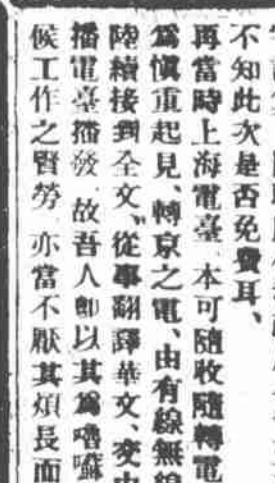 不知此次是否免費耳、
再當時上海電臺、本可隨收隨轉電
爲愼重起見、轉京之電、由有線無線
陸續接到全文、從事翻譯華文、交由
播電臺播發、故吾人卽以其爲嚕囌
候工作之賢勞、亦當不厭其煩長而